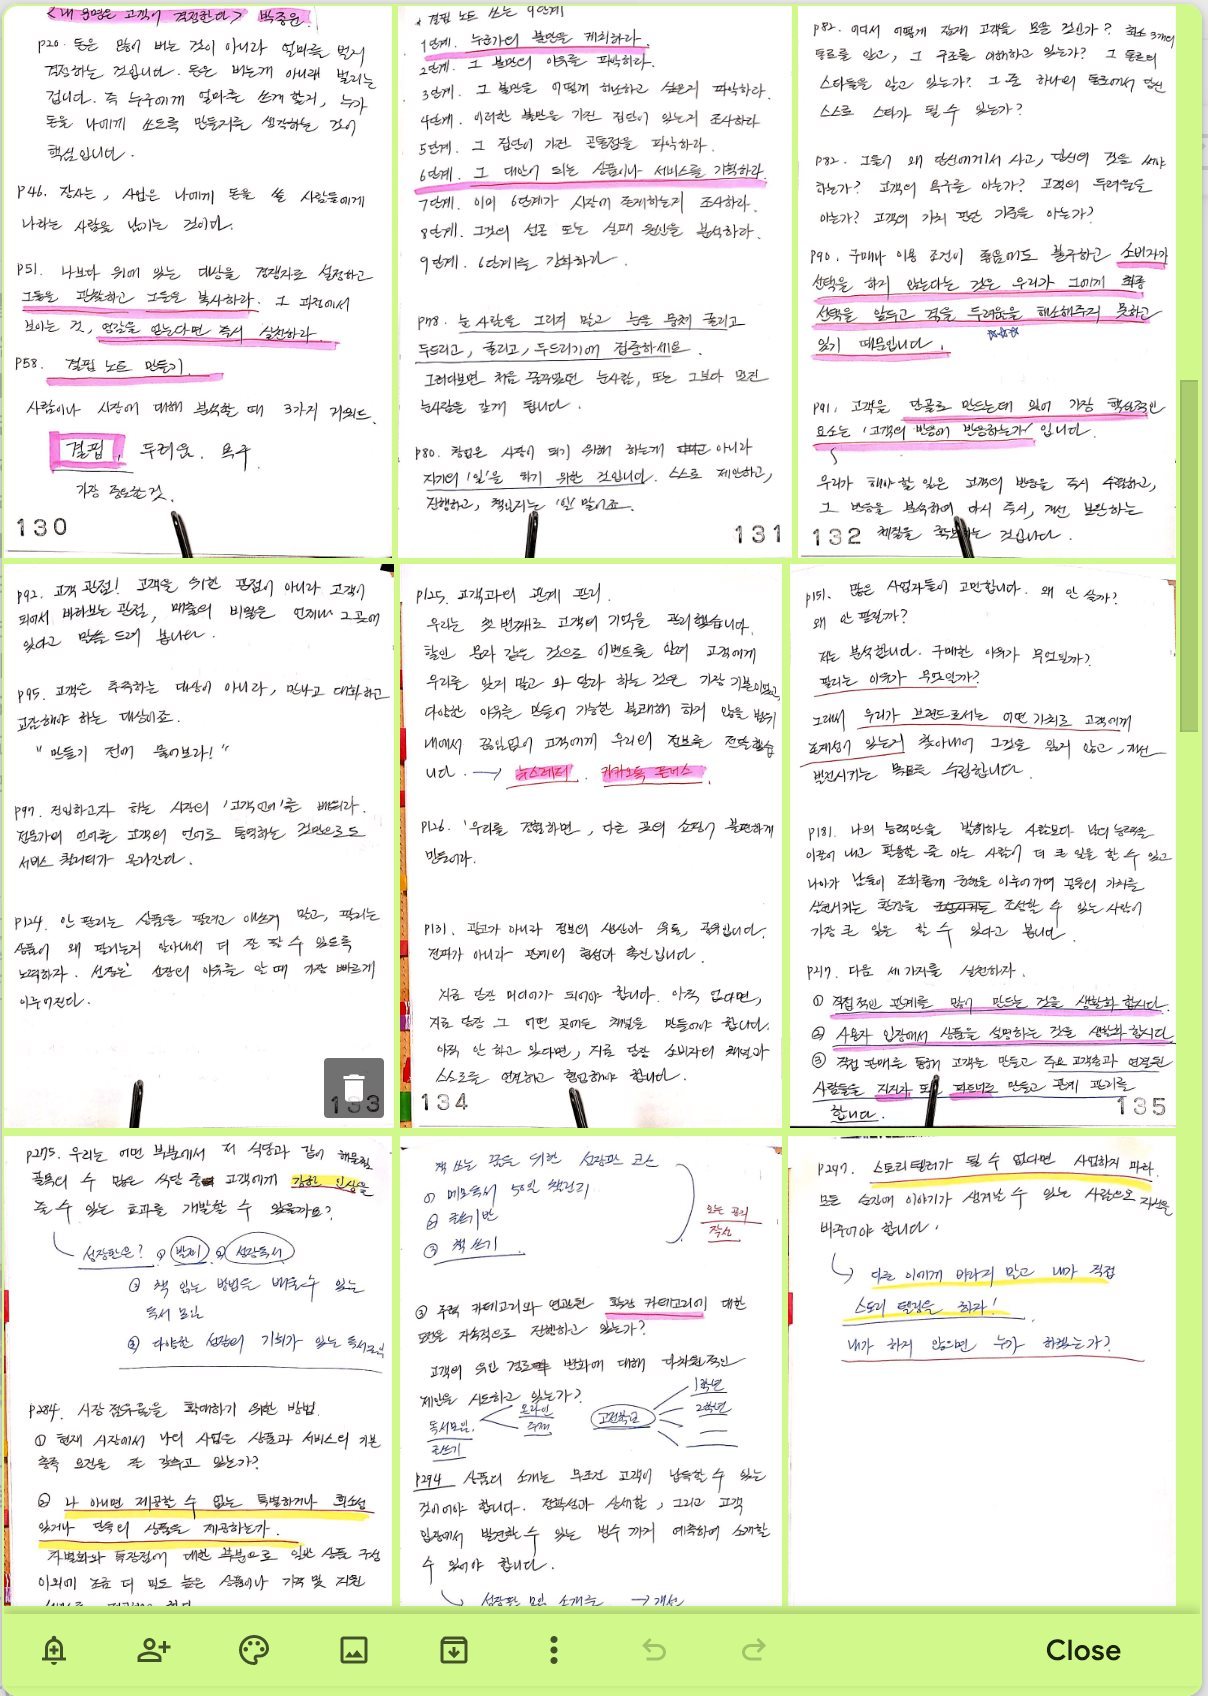 <내 운명은 고객이 결정한다> 박종윤
p20. 돈은 많이 버는 것이 아니라 얼마를 벌지
결정하는 것입니다. 돈은 버는게 아니라 벌리는
겁니다. 즉 누구에게 얼마를 쓰게 할지, 누가
돈을 나에게 쓰도록 만들지를 생각하는 것이
핵심입니다.
p46. 장사는, 사업은 나에게 돈을 쓸 사람들에게
나라는 사람을 남기는 것이다.
p51. 나보다 위에 있는 대상을 경쟁자로 설정하고
그들을 관찰하고 그들을 복사하라. 그 과정에서
보이는 것, 영감을 얻는다면 즉시 실천하라.
p58. 결핍 노트 만들기.
사람이나 시장에 대해 분석할 때 3가지 키워드.
결핍, 두려움, 욕구
가장 중요한 것.
130
* 결핍 노트 쓰는 9단계
1단계. 누군가의 불만을 캐치하라.
2단계. 그 불만의 이유를 파악하라.
3단계. 그 불만을 어떻게 해소하고 싶은지 파악하라.
4단계. 이러한 불만을 가진 집단이 있는지 조사하라
5단계. 그 집단이 가진 공통점을 파악하라.
6단계. 그 대안이 되는 상품이나 서비스를 기획하라.
7단계. 이미 6단계가 시장에 존재하는지 조사하라.
8단계. 그것의 성공 또는 실패 원인을 분석하라.
9단계. 6단계를 강화하라.
p78. 눈사람을 그리지 말고 눈을 뭉쳐 굴리고
두드리고, 굴리고, 두드리기에 집중하세요.
그러다보면 처음 꿈꾸었던 눈사람, 또는 그보다 멋진
눈사람을 갖게 됩니다.
p80. 창업은 사장이 되기 위해 하는게 아니라
자기의 '일'을 하기 위한 것입니다. 스스로 제안하고,
진행하고, 책임지는 '일' 말이죠.
131
p82. 어디서 어떻게 잠재 고객을 모을 것인가? 최소 3개의
통로를 알고, 그 구조를 이해하고 있는가? 그 통로의
스타들을 알고 있는가? 그 중 하나의 통로에서 당신
스스로 스타가 될 수 있는가?
p82. 그들이 왜 당신에게서 사고, 당신의 것을 써야
하는가? 고객의 욕구를 아는가? 고객의 두려움을
아는가? 고객의 가치 판단 기준을 아는가?
p90. 구매나 이용 조건이 좋음에도 불구하고 소비자가
선택을 하지 않는다는 것은 우리가 그에게 최종
선택을 앞두고 겪을 두려움을 해소해주지 못하고
있기 때문입니다.
p91. 고객을 단골로 만드는데 있어 가장 핵심적인
요소는 '고객의 반응에 반응하는가' 입니다.
우리가 해야 할 일은 고객의 반응을 즉시 수렴하고,
그 반응을 분석하여 다시 즉시, 개선 보완하는
체질을 확보하는 것입니다.
132
p92. 고객 관점! 고객을 위한 관점이 아니라 고객이
되어서 바라보는 관점, 매출의 비밀은 언제나 그곳에
있다고 말씀 드려 봅니다.
p95. 고객은 추측하는 대상이 아니라, 만나고 대화하고
교감해야 하는 대상이죠.
"만들기 전에 물어보라!"
p97. 진입하고자 하는 시장의 '고객언어'를 배워라.
전문가의 언어를 고객의 언어로 통역하는 것만으로도
서비스 퀄리티가 올라간다.
p124. 안 팔리는 상품을 팔려고 애쓰지 말고, 팔리는
상품이 왜 팔리는지 알아내서 더 잘 팔 수 있도록
노력하자. 성장은 성장의 이유를 알 때 가장 빠르게
이루어진다.
133
p125. 고객과의 관계 관리.
우리는 첫 번째로 고객의 기억을 관리했습니다.
할인 문자 같은 것으로 이벤트를 알려 고객에게
우리를 잊지 말고 와 달라 하는 것은 가장 기본이었고,
다양한 이유를 만들어 가능한 불쾌해 하지 않을 범위
내에서 끊임없이 고객에게 우리의 정보를 전달했습
니다. → 뉴스레터, 카카오톡 플러스
p126. '우리를 경험하면, 다른 곳의 쇼핑이 불편하게
만들어라.
p131. 광고가 아니라 정보의 생산과 유통, 공유입니다.
전파가 아니라 관계의 형성과 촉진입니다.
지금 당장 미디어가 되어야 합니다. 아직 없다면,
지금 당장 그 어떤 곳에든 채널을 만들어야 합니다.
아직 안 하고 있다면, 지금 당장 소비자의 채널과
스스로를 연결하고 협업해야 합니다.
134
p151. 많은 사업자들이 고민합니다. 왜 안 살까?
왜 안 팔릴까?
저는 분석합니다. 구매한 이유가 무엇일까?
팔리는 이유가 무엇일까?
그래서 우리가 브랜드로서는 어떤 가치로 고객에게
존재성이 있는지 찾아내어 그것을 잃지 않고, 개선
발전시키는 목표를 수립합니다.
p181. 나의 능력만을 발휘하는 사람보다 남의 능력을
이끌어 내고 활용할 줄 아는 사람이 더 큰 일을 할 수 있고
나아가 남들이 조화롭게 균형을 이루어가며 공동의 가치를
실현시키는 환경을 조성할 수 있는 사람이
가장 큰 일을 할 수 있다고 봅니다.
p217. 다음 세 가지를 실천하자.
① 직접적인 관계를 많이 만드는 것을 생활화 합시다.
② 사용자 입장에서 상품을 설명하는 것을 생활화 합시다
③ 직접 판매를 통해 고객을 만들고 주요 고객층과 연결된
사람들을 지지자 또는 파트너로 만들고 관계 관리를
합니다.
135
p275. 우리는 어떤 부분에서 저 식당과 같이 해운대
골목의 수 많은 식당 중 고객에게 강한 인상을
줄 수 있는 효과를 개발할 수 있을까요?
성장판은? ① 발제 ② 성장독서
③ 책 읽는 방법을 배울 수 있는
독서 모임
④ 다양한 성장의 기회가 있는 독서모임
p284. 시장 점유율을 확대하기 위한 방법.
① 현재 시장에서 나의 사업은 상품과 서비스의 기본
충족 요건을 잘 갖추고 있는가?
② 나 아니면 제공할 수 없는 특별하거나 희소성
있거나 단독의 상품을 제공하는가.
차별화와 특장점에 대한 부분으로 일반 상품 구성
이외에 조금 더 밀도 높은 상품이나 가격 및 지원
책 쓰는 꿈을 위한 성장판 코스
① 메모독서 50일 챌린지
② 글쓰기반
③ 책 쓰기
③ 주력 카테고리와 연관된 확장 카테고리에 대한
도전을 지속적으로 진행하고 있는가?
고객의 유입 경로 변화에 대해 다차원적인
제안을 시도하고 있는가?
독서모임 온라인 주제
글쓰기
고전학교 1학년 2학년
p294 상품의 소개는 무조건 고객이 납득할 수 있는
것이어야 합니다. 정확성과 상세함, 그리고 고객
입장에서 발견할 수 있는 변수까지 예측하여 소개할
수 있어야 합니다.
성장판 모임 소개글 → 개선
p297. 스토리텔러가 될 수 없다면 사업하지 마라.
모든 순간에 이야기가 생겨날 수 있는 사람으로 자신을
바꾸어야 합니다.
다른 이에게 바라지 말고 내가 직접
스토리 텔링을 하자!
내가 하지 않으면 누가 하겠는가?
Close